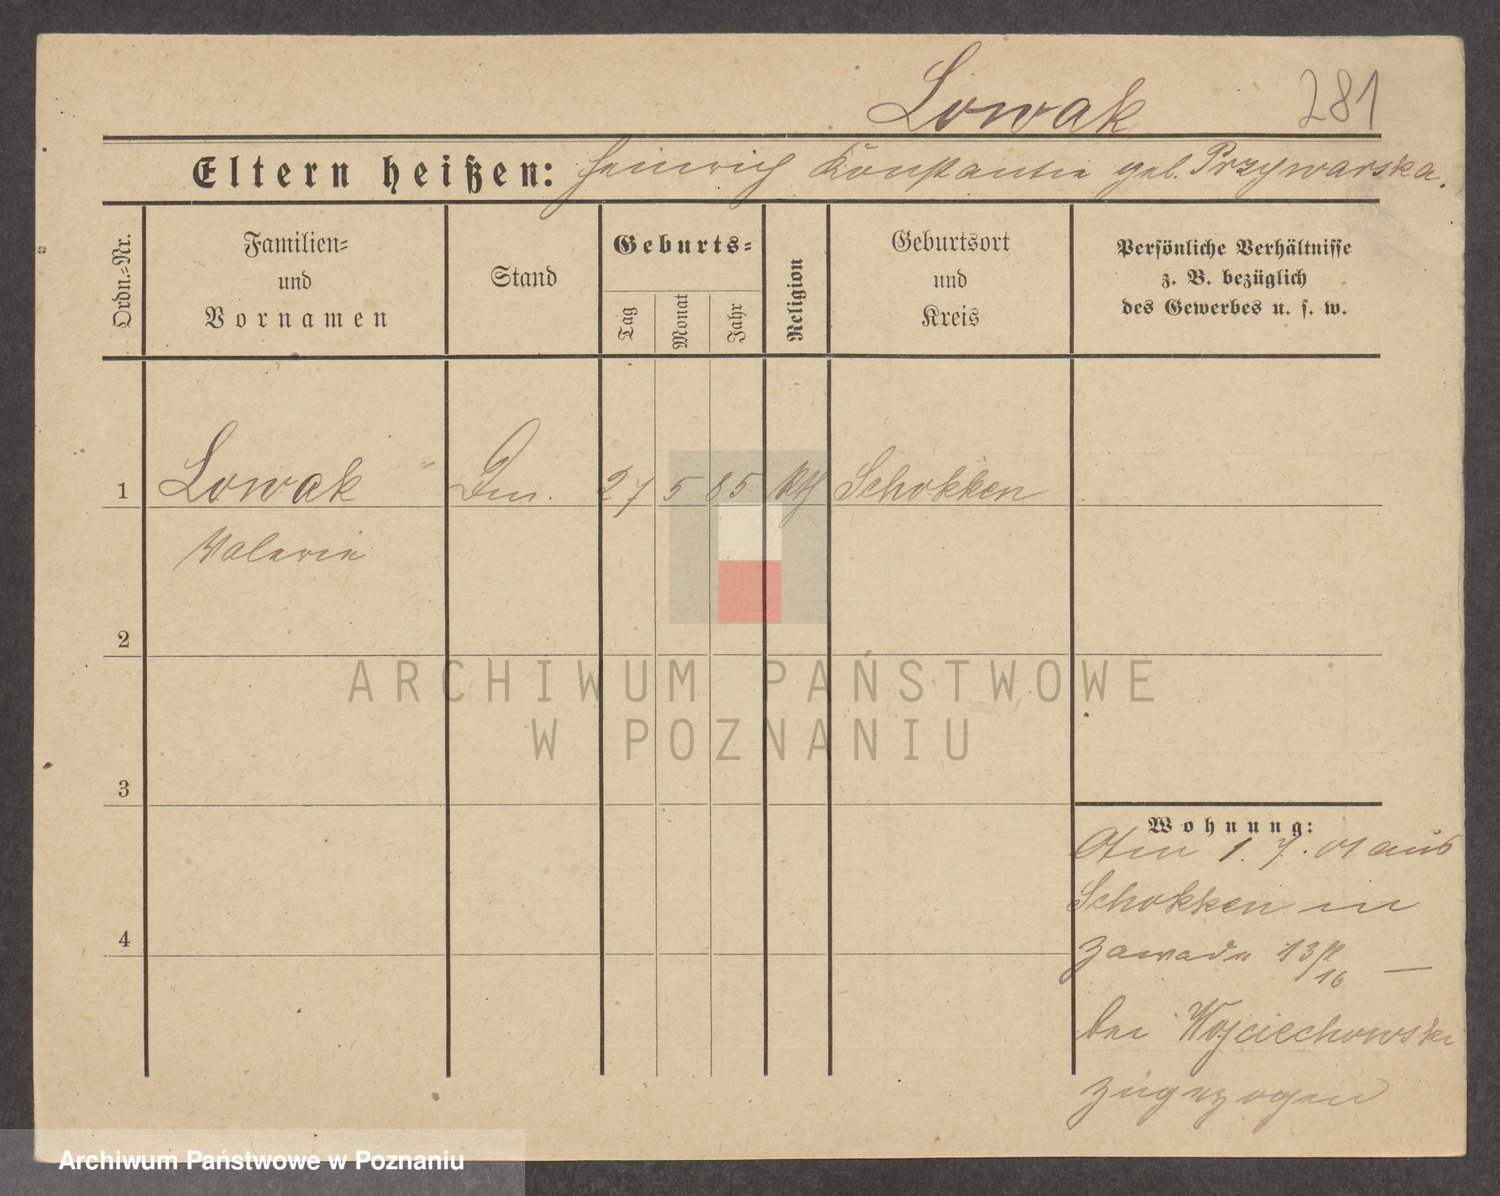 Lowak 281
Eltern heißen: Heinrich Konstantie geb. Przywarska.
Ordn.-Nr.
Familien-
und
Vornamen
Stand
Geburts-
Tag
Monat
Jahr
Religion
Geburtsort
und
Kreis
Persönliche Verhältnisse
z. B. bezüglich
des Gewerbes u. s. w.
1 Lowak 27 5 85 kth Schokken
Valerie
2
3
4
Wohnung:
Am 1. 7. 01 aus
Schokken in
Zawade 13
16 —
bei Wojciechowski
zugezogen
ARCHIWUM PAŃSTWOWE
W POZNANIU
Archiwum Państwowe w Poznaniu